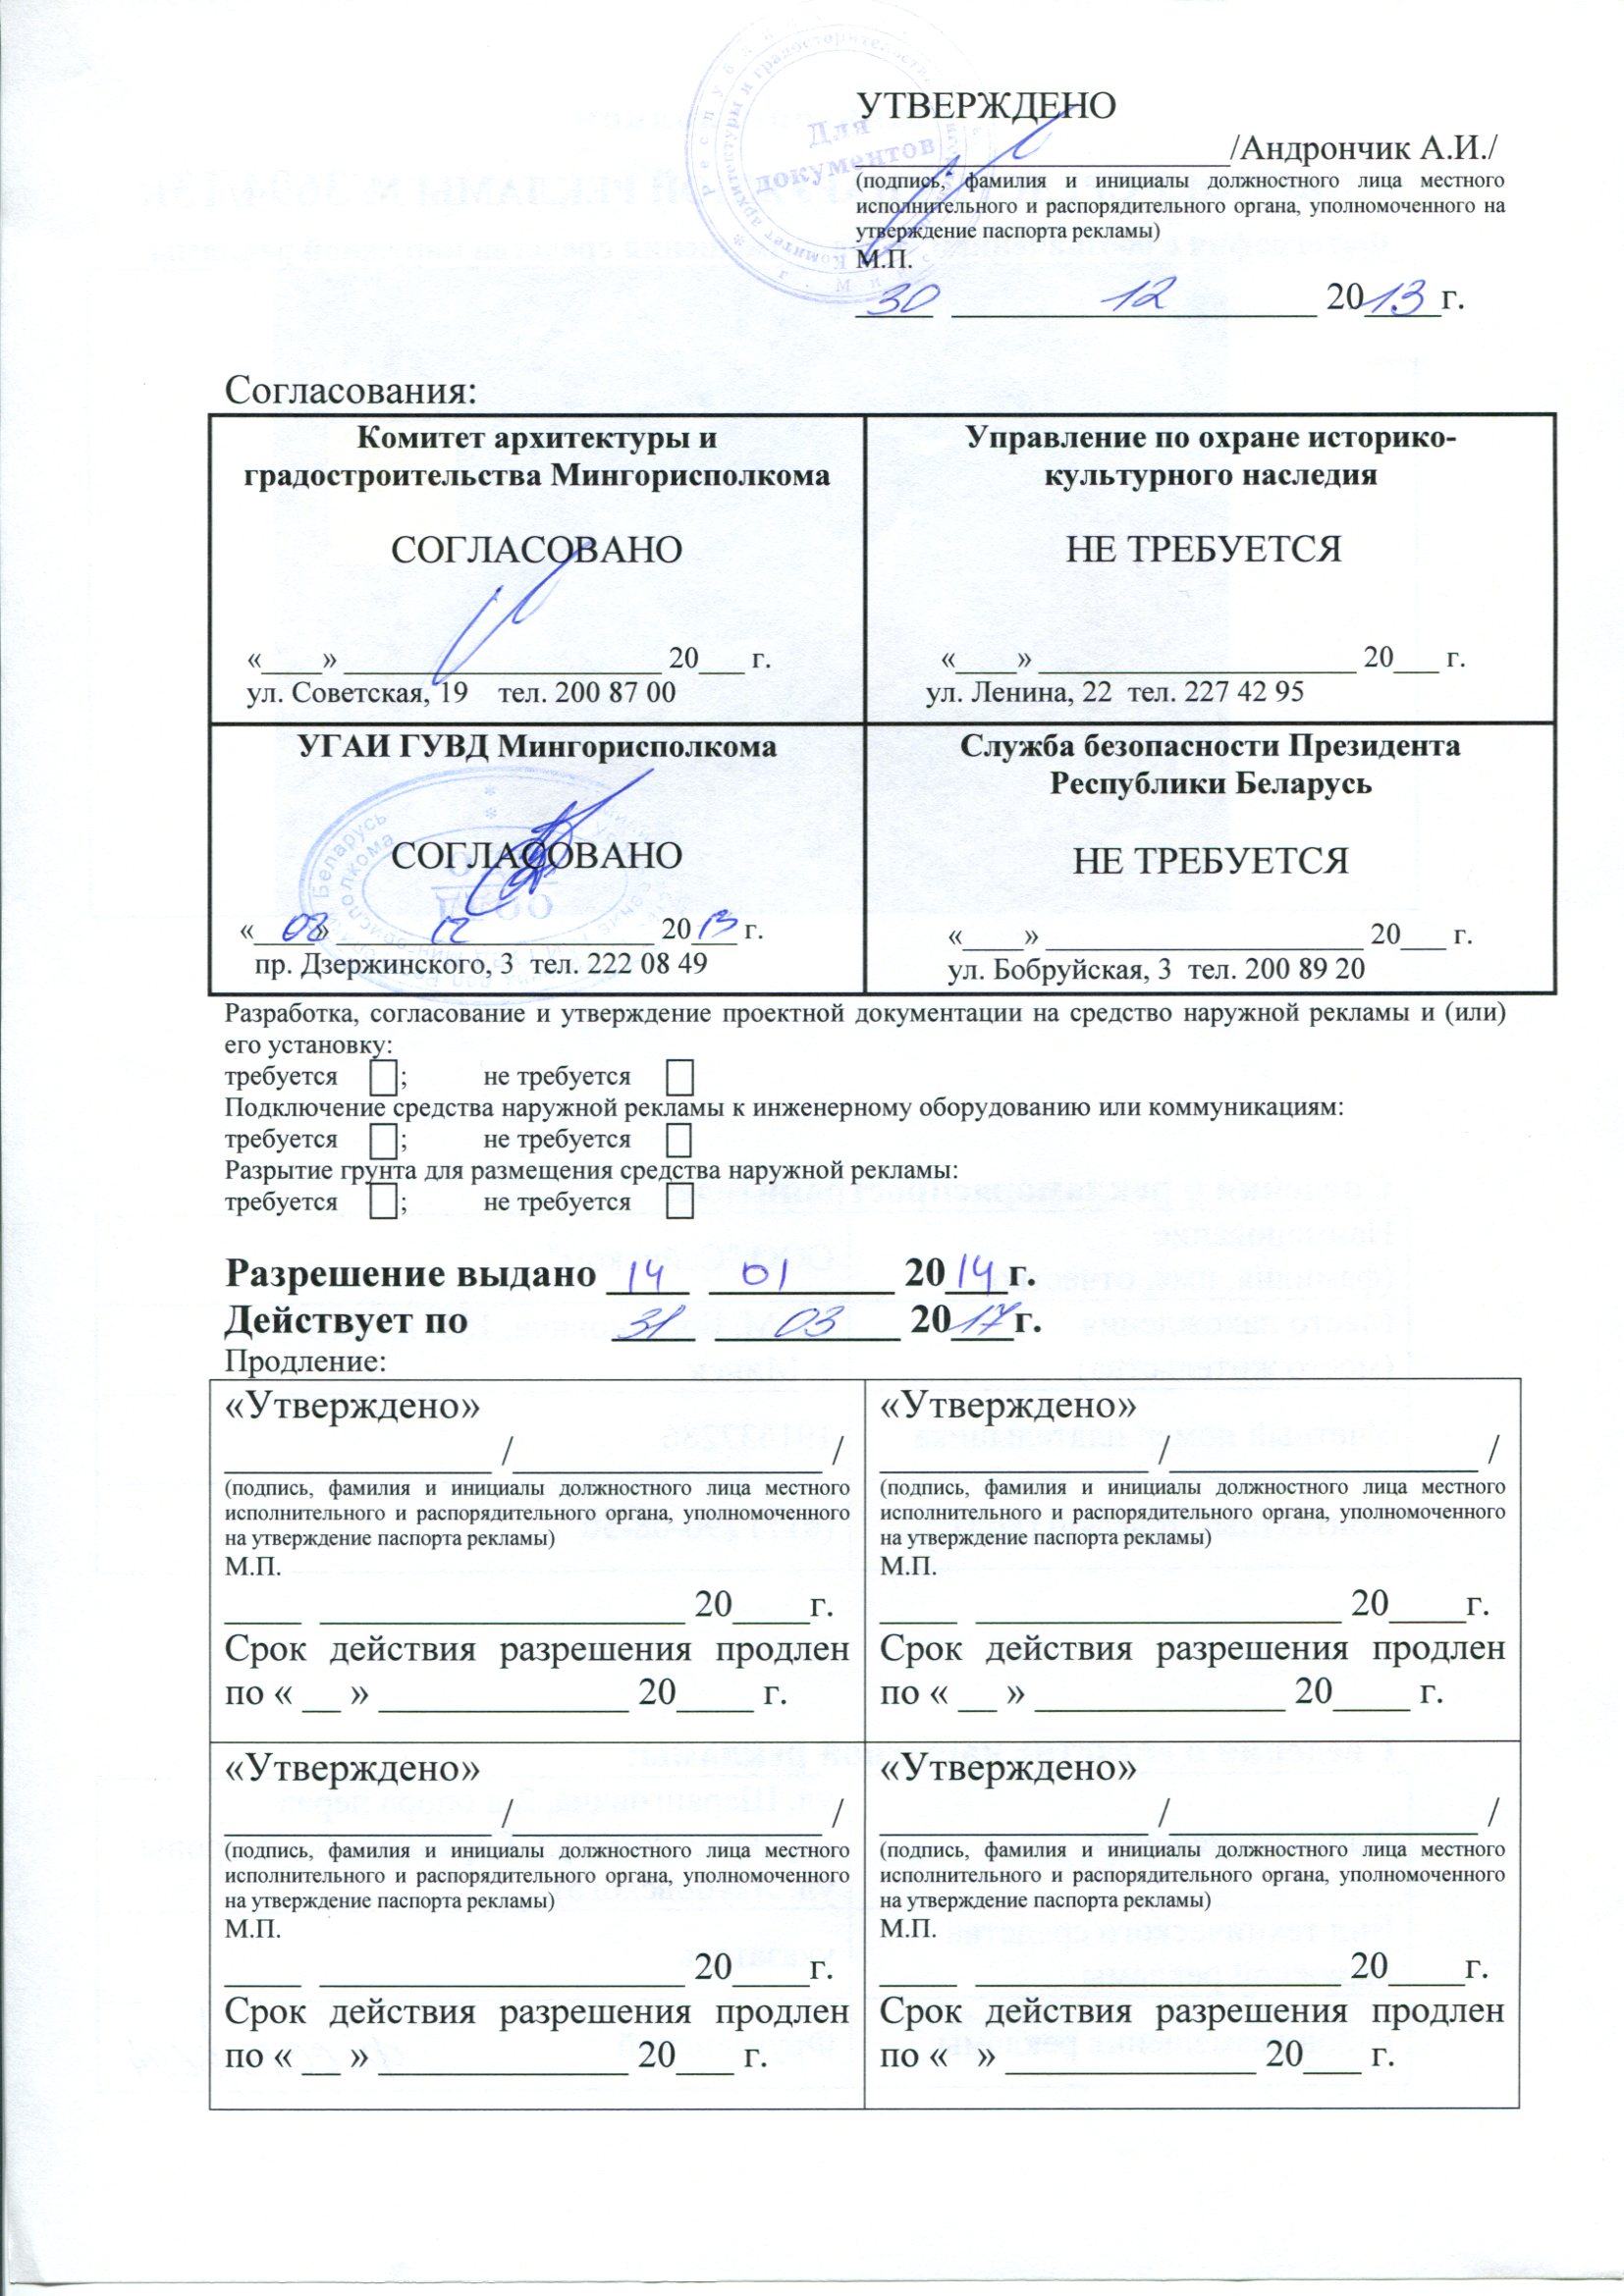 УТВЕРЖДЕНО
____________________/Андрончик А.И./
(подпись, фамилия и инициалы должностного лица местного
исполнительного и распорядительного органа, уполномоченного на
утверждение паспорта рекламы)
М.П.
30 12 2013 г.
Для
документов
Согласования:
Комитет архитектуры и
градостроительства Мингорисполкома
СОГЛАСОВАНО
«____» ____________________ 20___ г.
ул. Советская, 19 тел. 200 87 00
Управление по охране историко-
культурного наследия
НЕ ТРЕБУЕТСЯ
«____» ____________________ 20___ г.
ул. Ленина, 22 тел. 227 42 95
УГАИ ГУВД Мингорисполкома
СОГЛАСОВАНО
«02» 12 2013 г.
пр. Дзержинского, 3 тел. 222 08 49
Служба безопасности Президента
Республики Беларусь
НЕ ТРЕБУЕТСЯ
«____» ____________________ 20___ г.
ул. Бобруйская, 3 тел. 200 89 20
Разработка, согласование и утверждение проектной документации на средство наружной рекламы и (или)
его установку:
требуется ; не требуется
Подключение средства наружной рекламы к инженерному оборудованию или коммуникациям:
требуется ; не требуется
Разрытие грунта для размещения средства наружной рекламы:
требуется ; не требуется
Разрешение выдано 14 01 2014 г.
Действует по 31 03 2017 г.
Продление:
«Утверждено»
______________ /________________ /
(подпись, фамилия и инициалы должностного лица местного
исполнительного и распорядительного органа, уполномоченного
на утверждение паспорта рекламы)
М.П.
____ ___________________ 20____г.
Срок действия разрешения продлен
по « __ » _____________ 20____ г.
«Утверждено»
______________ /________________ /
(подпись, фамилия и инициалы должностного лица местного
исполнительного и распорядительного органа, уполномоченного
на утверждение паспорта рекламы)
М.П.
____ ___________________ 20____г.
Срок действия разрешения продлен
по « __ » _____________ 20____ г.
«Утверждено»
______________ /________________ /
(подпись, фамилия и инициалы должностного лица местного
исполнительного и распорядительного органа, уполномоченного
на утверждение паспорта рекламы)
М.П.
____ ___________________ 20____г.
Срок действия разрешения продлен
по « __ » _____________ 20___ г.
«Утверждено»
______________ /________________ /
(подпись, фамилия и инициалы должностного лица местного
исполнительного и распорядительного органа, уполномоченного
на утверждение паспорта рекламы)
М.П.
____ ___________________ 20____г.
Срок действия разрешения продлен
по « » _____________ 20___ г.